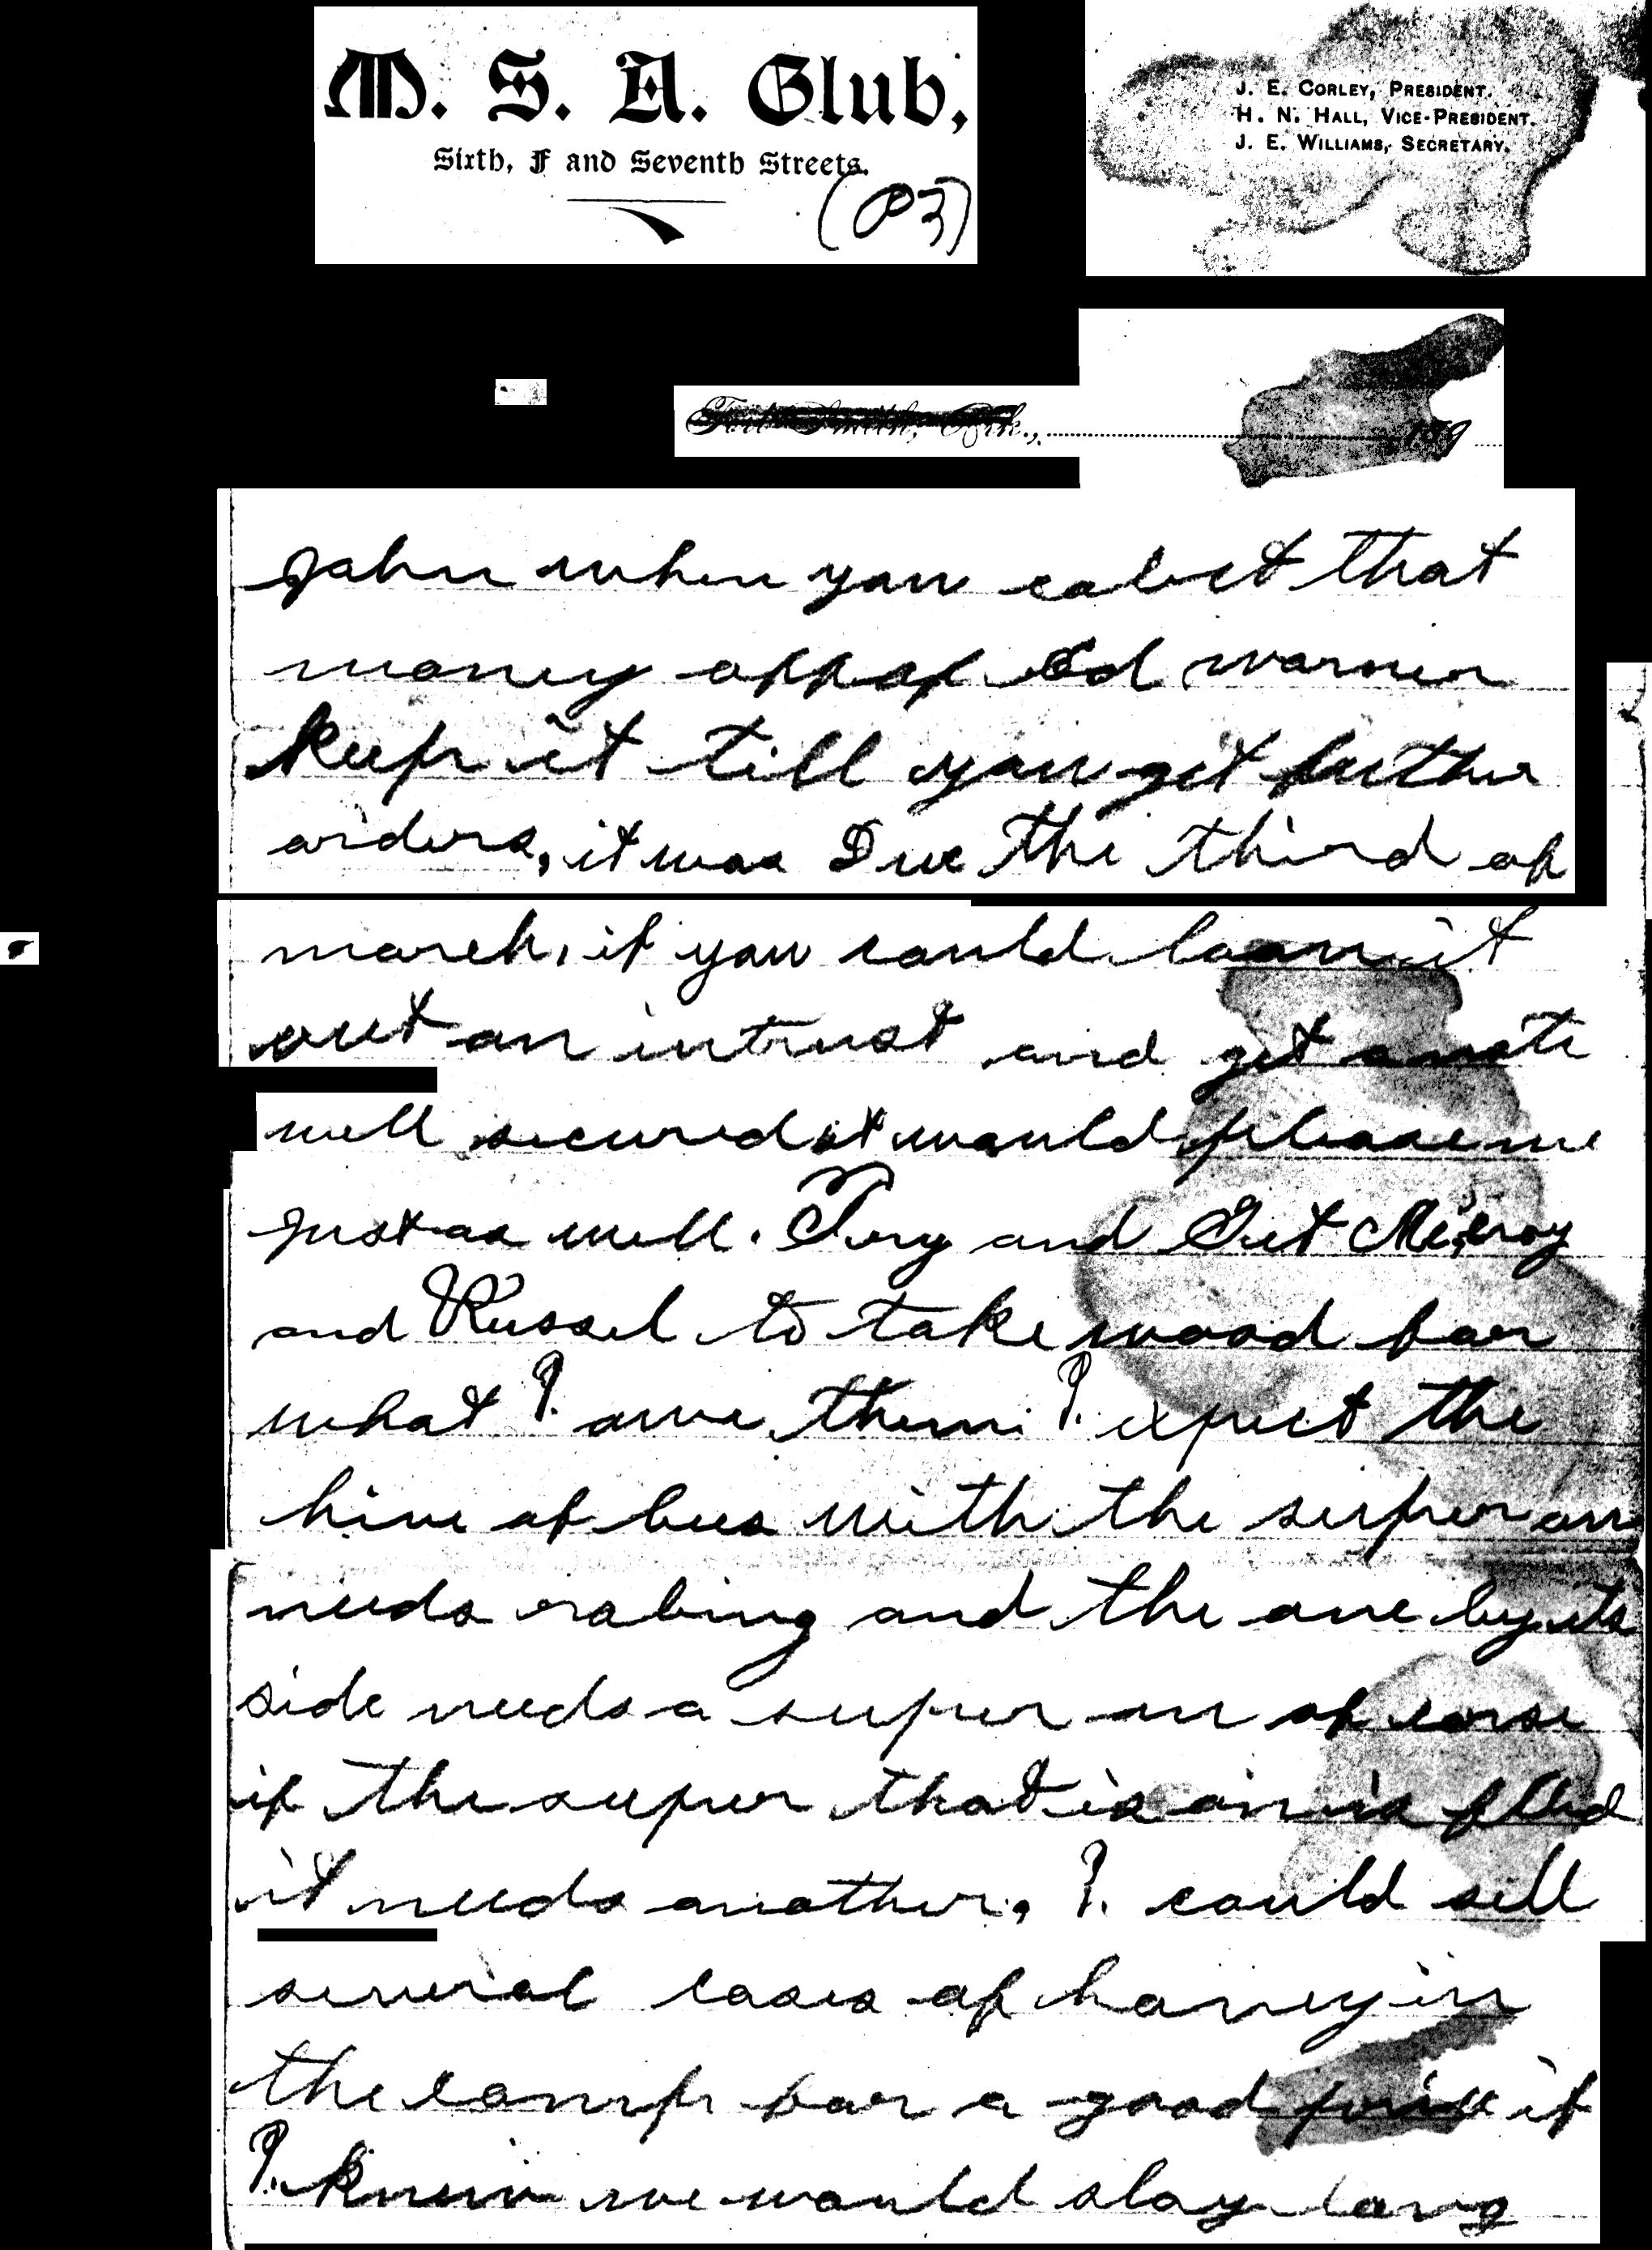 M. S. A. Club,
Sixth, F and Seventh Streets.
(P3)
J. E. CORLEY, PRESIDENT.
H. N. HALL, VICE-PRESIDENT.
J. E. WILLIAMS, SECRETARY.
Fort Smith, Ark., 189
John when you colect that
money off of Ed warner
Keep it till you get futher
orders, it was Due the third of
march, if you could loan it
out on intrust and get a note
well secured it would please me
just as well. Try and Get
and Russel to take wood for
what I. owe them. I. expect the
hive of bees with the super on
needs robing and the one by its
side needs a super on of corse
if the super that is on is filled
it needs another, I. could sell
several cases of honey in
the comp for a good price if
I. knew we would stay long